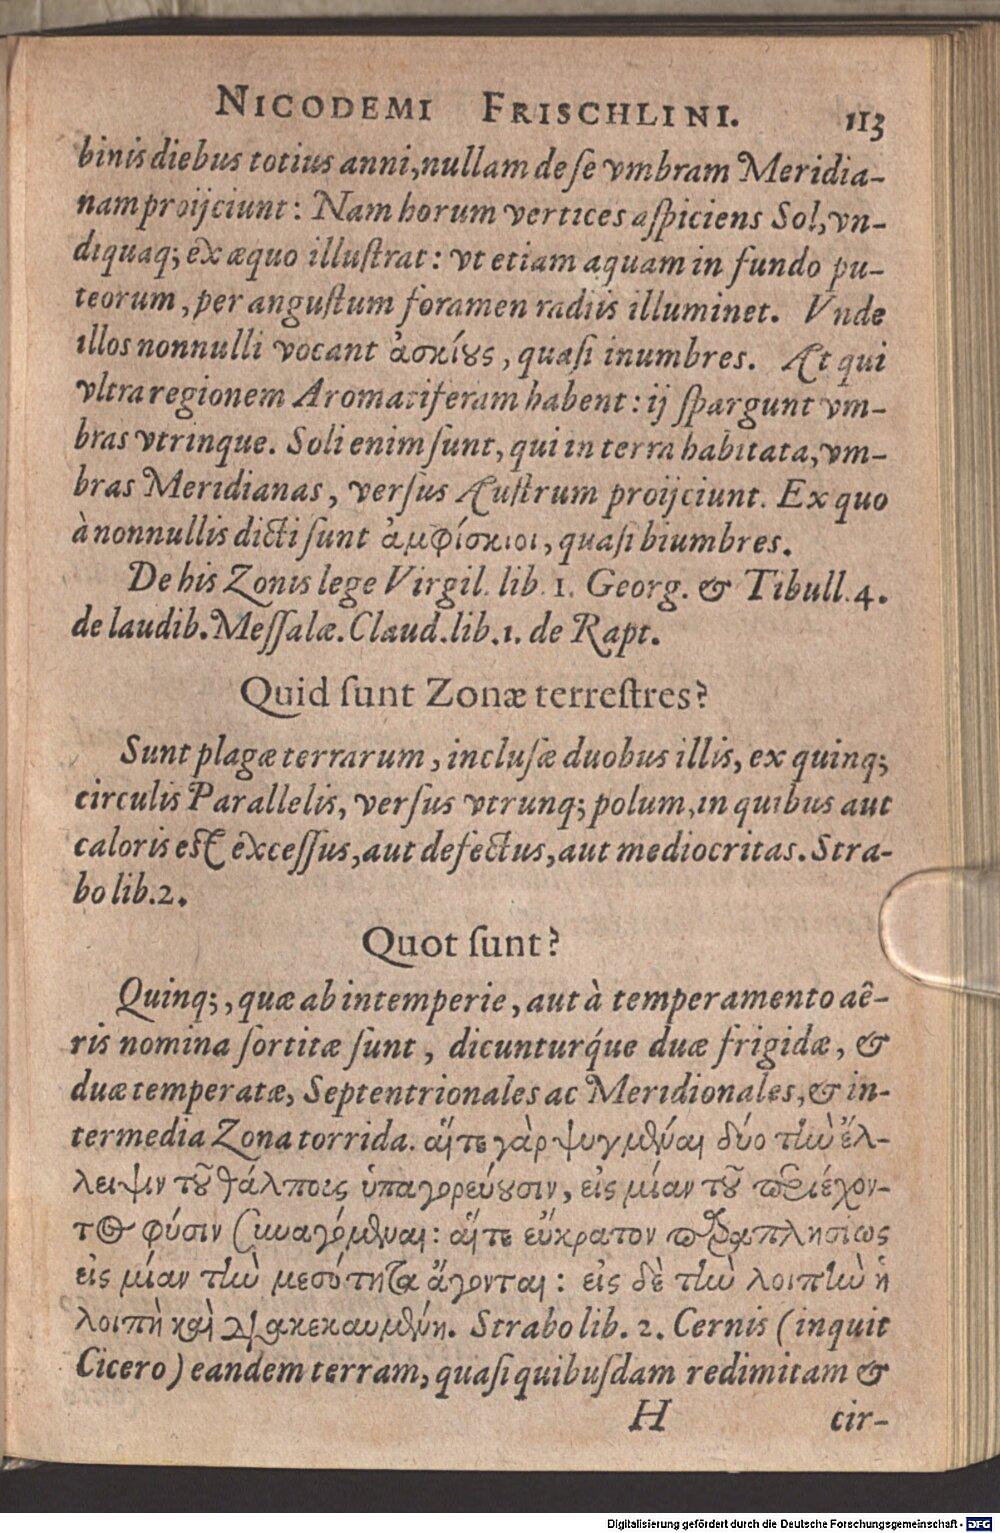 NICODEMI FRISCHLINI. 113
binis diebus totius anni, nullam de se vmbram Meridia-
nam proijciunt: Nam horum vertices aspiciens Sol, vn-
diquaq; ex æquo illustrat: vt etiam aquam in fundo pu-
teorum, per angustum foramen radiis illuminet. Vnde
illos nonnulli vocant ἀσκίους, quasi inumbres. At qui
vltra regionem Aromatiferam habent: ij spargunt vm-
bras vtrinque. Soli enim sunt, qui in terra habitata, vm-
bras Meridianas, versus Austrum proijciunt. Ex quo
à nonnullis dicti sunt ἀμφίσκιοι, quasi biumbres.
De his Zonis lege Virgil. lib. 1. Georg. & Tibull. 4.
de laudib. Messalæ. Claud. lib. 1. de Rapt.
Quid sunt Zonæ terrestres?
Sunt plagæ terrarum, inclusæ duobus illis, ex quinq;
circulis Parallelis, versus vtrunq; polum, in quibus aut
caloris est excessus, aut defectus, aut mediocritas. Stra-
bo lib. 2.
Quot sunt?
Quinq;, quæ ab intemperie, aut à temperamento aê-
ris nomina sortitæ sunt, dicuntur&#x27;que duæ frigidæ, &
duæ temperatæ, Septentrionales ac Meridionales, & in-
termedia Zona torrida. αἵτε γὰρ ψυγμέναι δύο τὴν ἔλ-
λειψιν τοῦ θάλποις ὑπαγορεύουσιν, εἰς μίαν τοῦ περιέχον-
τος φύσιν συναγόμεναι: αἵτε εὔκρατον παραπλησίως
εἰς μίαν τὴν μεσότητα ἄγονται: εἰς δὲ τὴν λοιπὴν ἡ
λοιπὴ καὶ διακεκαυμένη. Strabo lib. 2. Cernis (inquit
Cicero) eandem terram, quasi quibusdam redimitam &
H cir-
Digitalisierung gefördert durch die Deutsche Forschungsgemeinschaft - DFG